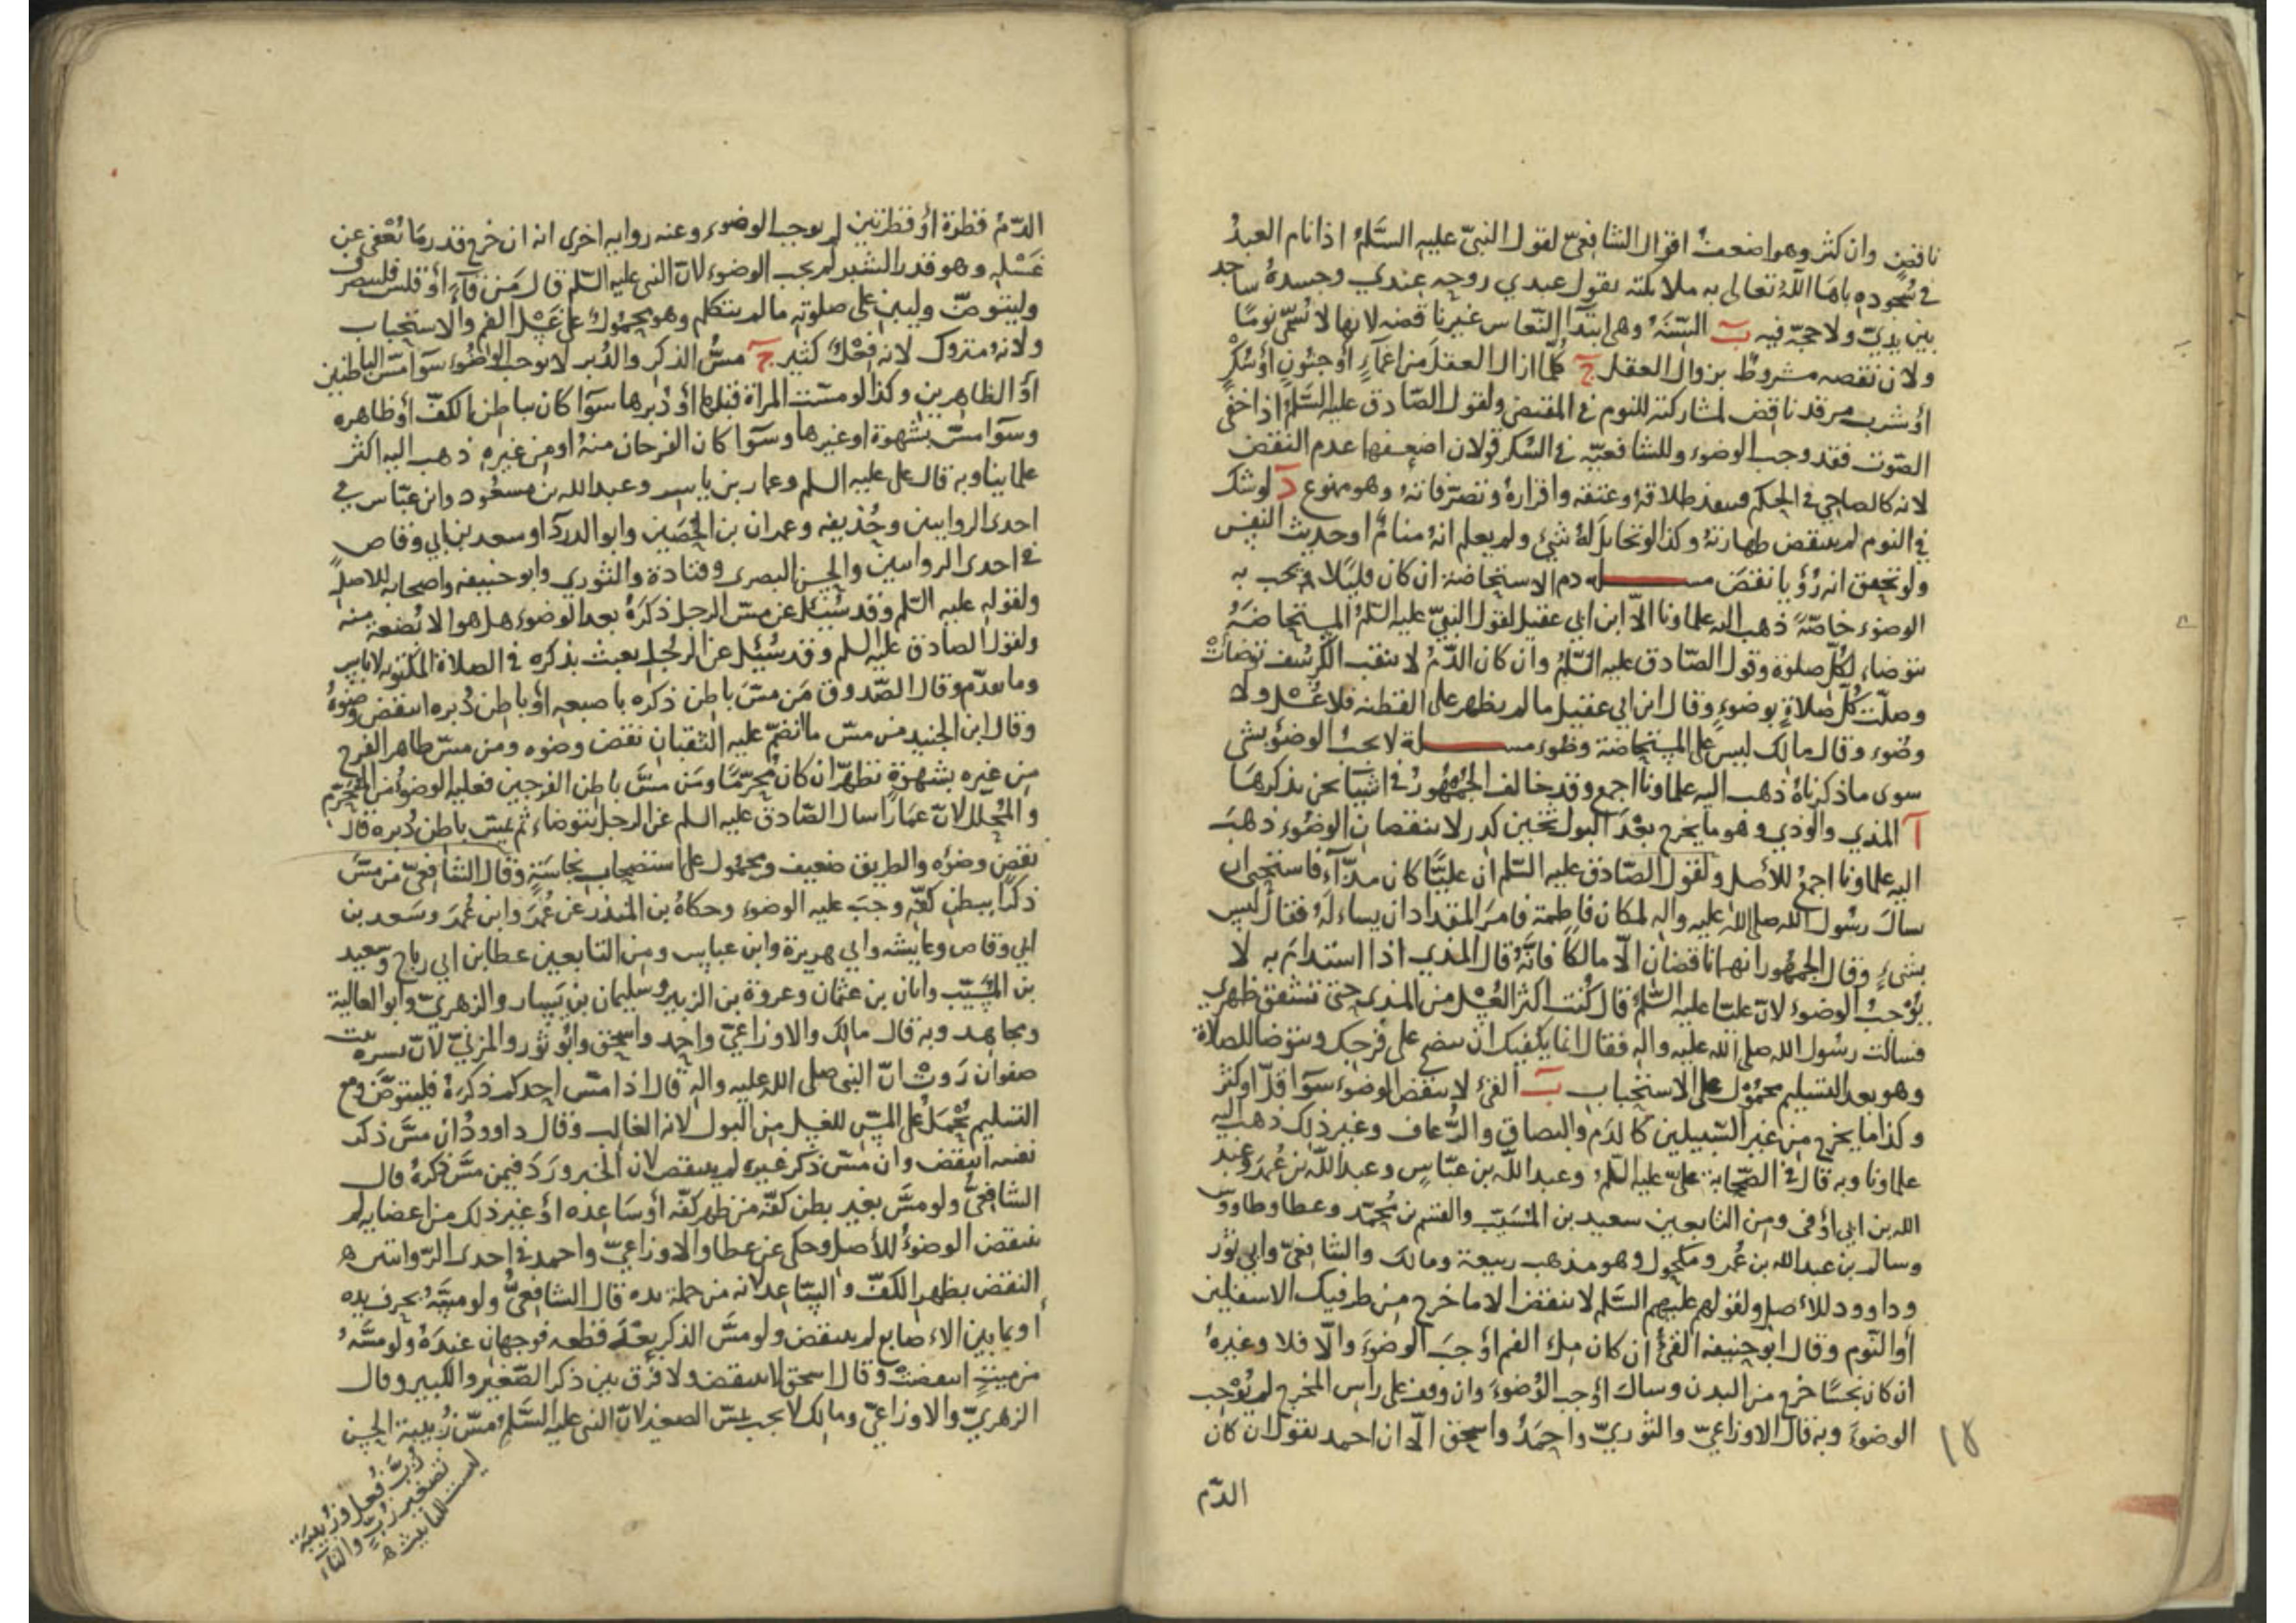 ناقض وان كثر وهو اضعف اقوال الشافعيّ لقول النبيّ عليه السَّلم اذا نام العبدُ
في سُجوده باها اللّٰه تعالى به ملائكته يقول عبدي روحه عندي وجسدهُ ساجد
بين يديّ ولا حجّة فيه ب السِّنَهُ وهي ابتدا النّعاس غير ناقضه لانها لا تُسمّى نومًا
ولان نقضه مشروطٌ بزوال العقل ج كُلّما ازال العقل من اغمآءٍ او جنونٍ أو سُكْرٍ
أو شرب مرقد ناقض لمشاركته للنوم في المقتضى ولقول الصّادق عليه السَّلم اذا خفى
الصّوت فقد وجب الوضوء وللشافعيّه في السُكر قولان اضعفها عدم النقض
لانه كالصاحي في الحكم فينفذ طلاقهُ وعتقه واقرارهُ وتصرّفاتهُ وهو ممنوع د لو شك
في النوم لم ينقض طهارتهُ وكذا لو تخايل لهُ شيءٌ ولم يعلم انهُ منامٌ او حديث النفس
ولو تحقق انه رُؤيا نقضَ مسـله دم الاستحاضة ان كان قليلًا وجب به
الوضوء خاصّةً ذهب اليه علماونا الّا ابن ابي عقيل لقول النبيّ عليه السّلمُ المستحاضَةُ
تتوضاء لكُلّ صلوة وقول الصّادق عليه السّلمُ وان كان الدّمُ لا يثقب الكُرسُف توضأتْ
وصلّت كُلّ صلاةٍ بوضوءٍ وقال ابن ابي عقيل ما لم يظهر على القطنه فلا غُسْل ولا
وضُوء وقال مالك ليس على المستحاضة وضوء مسـلة لا يجبُ الوضوُ بشي
سوى ما ذكرناهُ ذهب اليه علماونا اجمع وقد خالف الجُمْهُورُ في اشيآ نحن نذكرها
آ المذي والوذي وهو ما يخرج بعْدَ البول ثخين كدر لا ينقضان الوضُوء ذهبَ
اليه علماونا اجمعُ للأصل ولقول الصّادق عليه السّلم ان عليًّا كان مذّآءً فاستحيى ان
يسال رسُول اللّٰه صلى اللّٰه عليه واله لمكان فاطمة فامرَ المقداد ان يساءله فقال ليس
بشيءٍ وقال الجمهُور انهما ناقضان الّا مالكًا فانّهُ قال المذي اذا استدام به لا
يُوْجبُ الوضوء لانّ عليّا عليه السّلمُ قال كُنت اكثر الغُسْل من المذي حتى تشقق ظهري
فسالت رسُول اللّٰه صلى اللّٰه عليه واله فقال انما يكفيك ان تنضح على فرجك وتتوضا للصلاة
وهو بعد التسليم محمُوْل على الاستحباب ب القئ لا ينقض الوضوء سَوآ قلّ او كثر
وكذا ما يخرج من غير السّبيلين كالدّم والبصاق والرُّعاف وغير ذلك ذهب اليه
علماونا وبه قال في الصّحابة عليّ عليه السّلمُ وعبد اللّٰه بن عبّاسٍ وعبد اللّٰه بن عُمَرَ وعبد
اللّٰه بن ابي أوْفى ومن التابعين سعيد بن المُسَيّب والقسم بن محُمّد وعطا وطاووس
وسالم بن عبد اللّٰه بن عُمر ومكحول وهو مذهب ربيعة ومالك والشافعيّ وابي ثور
وداوود للأصل ولقولهم عليهم السَّلم لا ينقض الا ما خرج من طرفيك الاسفلين
أو النّوم وقال ابو حنيفه القئُ ان كان مِلءَ الفم أوْجَبَ الوضوءَ والّا فلا وغيرهُ
ان كان نجسًا خرج من البدن وسال أوْجب الوُضوءَ وان وقف على راس المخرج لم يُوْجب
الوضوءَ وبه قال الاوزاعيّ والثوريّ واحمَدُ واسحق الّا ان احمد يقول ان كان
الدّم
١٨
الدّمُ قطرة أوْ قطرتين لم يوجب الوضوء وعنه روايه اخرى انه ان خرج قدر ما يُعْفى عن
غَسْله وهو قدر الشبر لم يجب الوضوء لانّ النبي عليه السّلم قال مَن قآءَ أوْ قلس فلينصرف
وليتوضّ وليبن على صلوته ما لم يتكلم وهو محمُولٌ على غَسْل الفم والاستحباب
ولانهُ متروك لانه فِعْلٌ كثير ج مسُّ الذكر والدُبر لا يوجب الوضُوء سَوآ مسّ الباطنين
أوْ الظاهرين وكذا لو مسّت المراة قبلها أوْ دُبرها سوَآ كان بباطن الكفّ أوْ ظاهره
وسوَآ مسّ بشهوة او غيرها وسوَآ كان الفرجان منهُ او من غيره ذهب اليه اكثر
علماينا وبه قال على عليه السلم وعمار بن ياسر وعبد اللّٰه بن مسعُود وابن عبّاس في
احدى الروايتين وحُذيفه وعمران بن الحُصَين وابو الدردآ وسعد بن ابي وقاص
في احدى الروايتين والحسن البصرى وقتادة والثوري وابو حنيفه واصحابه للاصل
ولقوله عليه السّلم وقد سُئِل عن مسّ الرجل ذكرَهُ بعد الوضوء هل هو الا بُضعة منه
ولقول الصادق عليه السلم وقد سُئِل عن الرجُل يعبث بذكره في الصلاة المكتوبه لا باس
وما تقدّم وقال الصّدوق مَن مسَّ باطن ذكره باصبعه أوْ باطن دُبره انتقض وضوهُ
وقال ابن الجنيد من مسّ ما انضمّ عليه الثقبان نقض وضوه ومن مسّ ظاهر الفرج
من غيره بشهْوَةٍ تطهّر ان كان مُحَرّمًا ومَن مسَّ باطن الفرجين فعليه الوضوءُ من المُحرّم
والمُحلل لانّ عمارًا سال الصّادق عليه السلم عن الرجل يتوضاء ثم يمسّ باطن دُبره قال
نقض وضوُه والطريق ضعيف ومحمُول على استصحاب نجاسَةٍ وقال الشافعيّ من مسَّ
ذكرًا ببطن كفّه وجبَ عليه الوضوء وحكاهُ بن المنذر عن عُمَرَ وابن عُمَرَ وسَعد بن
ابي وقاص وعايشه وابي هريرة وابن عباس ومن التابعين عطا بن ابي رباح وسعيد
بن المُسَيّب وابان بن عثمان وعروة بن الزبير وسليمان بن يَسار والزهريّ وابو العالية
ومجاهد وبه قال مالك والاوزاعيّ واحمد واسحق وابُو ثور والمزنيّ لانّ بسره بنت
صفوان رَوتْ انّ النبى صلى اللّٰه عليه واله قال اذا مسّ احدكم ذكرَهُ فليتوضّ ومع
التسليم يُحْمَلُ على المسّ للغسل من البول لانه الغالب وقال داوودُ ان مسَّ ذكر
نفسه انتقض وان مسّ ذكر غيره لم ينتقض لان الخبر ورَدَ فيمن مسَّ ذكرهُ قال
الشافعيُّ ولو مسَّ بغير بطن كفّه من ظهر كفّه أوْ سَاعده أوْ غير ذلك من اعضايه لم
ينتقض الوضوُءُ للأصل وحكى عن عطا والاوزاعيّ واحمد في احدى الرّوايتين
النقض بظهر الكفّ والسّاعد لانه من جملة يده قال الشافعيُّ ولو مسّهُ بحرف يده
أو بما بين الاصابع لم ينتقض ولو مسَّ الذكر بعْدَ قطعه فوجهان عندَهُ ولو مسَّهُ
من ميتٍ انتقضتْ وقال اسحق لا ينتقض ولا فرْق بين ذكر الصّغير والكبير وقال
الزهريّ والاوزاعيّ ومالك لا يجب بمسّ الصغير لانّ النبى عليه السَّلمُ مسّ زُبيبة الحسن
زُبّ فُعل وزُبيبَة
تصغير زُبّ والتاء
ليست للتانيث